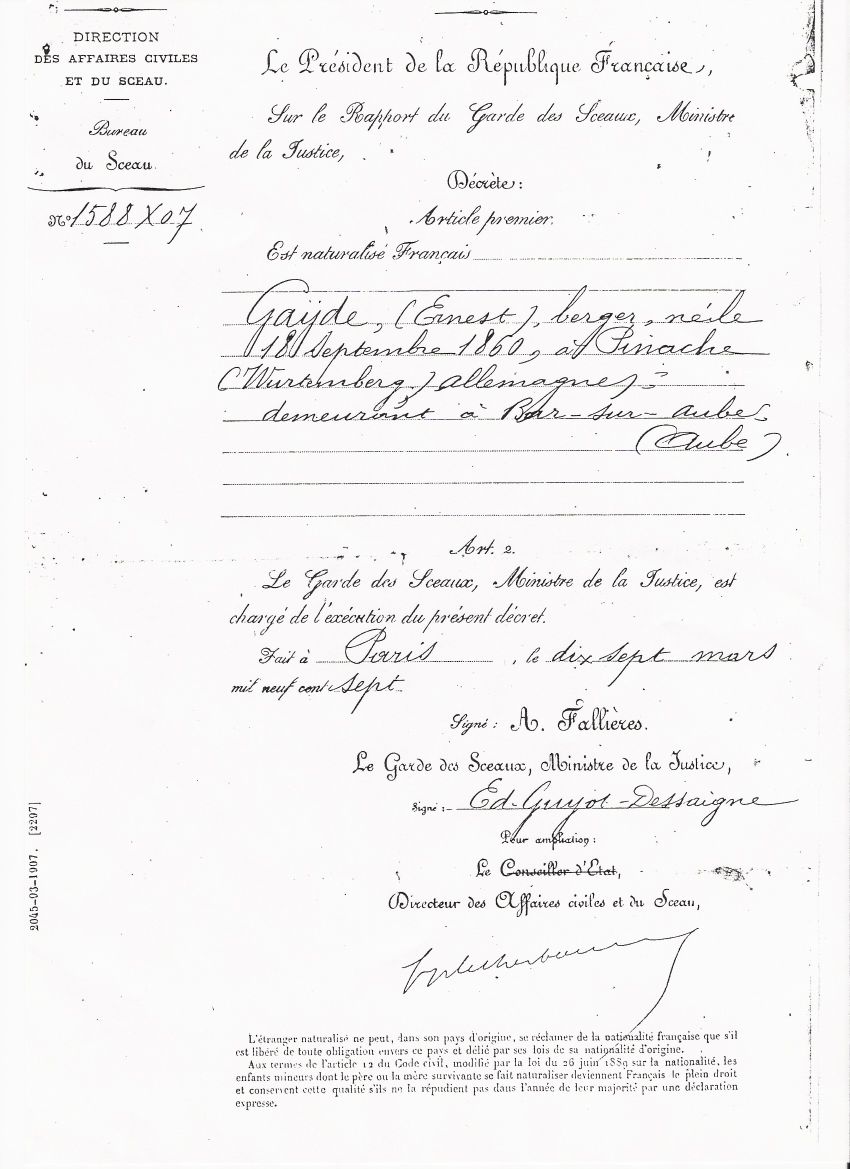 DIRECTION
DES AFFAIRES CIVILES
ET DU SCEAU.
Bureau
du Sceau.
No 1588 X 07
Le Président de la République Française,
Sur le Rapport du Garde des Sceaux, Ministre
de la Justice,
Décrète :
Article premier.
Est naturalisé Français
Gaÿde, (Ernest), berger, né le
18 Septembre 1860, à Pinache
(Wurtemberg) allemagne)
demeurant à Bar-sur-aube
(Aube)
Art. 2.
Le Garde des Sceaux, Ministre de la Justice, est
chargé de l'exécution du présent décret.
Fait à Paris, le dix sept mars
mil neuf cent sept.
Signé : A. Fallières.
Le Garde des Sceaux, Ministre de la Justice,
Signé :- Ed. Guyot-Dessaigne
Pour ampliation :
Le Conseiller d'Etat,
Directeur des Affaires civiles et du Sceau,
2045-03-1907. [2297]
L'étranger naturalisé ne peut, dans son pays d'origine, se réclamer de la nationalité française que s'il
est libéré de toute obligation envers ce pays et délié par ses lois de sa nationalité d'origine.
Aux termes de l'article 12 du Code civil, modifié par la loi du 26 juin 1889 sur la nationalité, les
enfants mineurs dont le père ou la mère survivante se fait naturaliser deviennent Français le plein droit
et conservent cette qualité s'ils ne la répudient pas dans l'année de leur majorité par une déclaration
expresse.